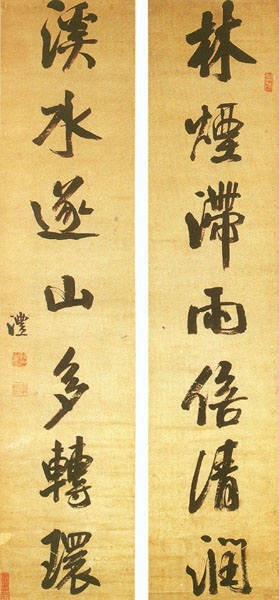 林煙滯雨倍清潤
溪水遂山多轉環
灃